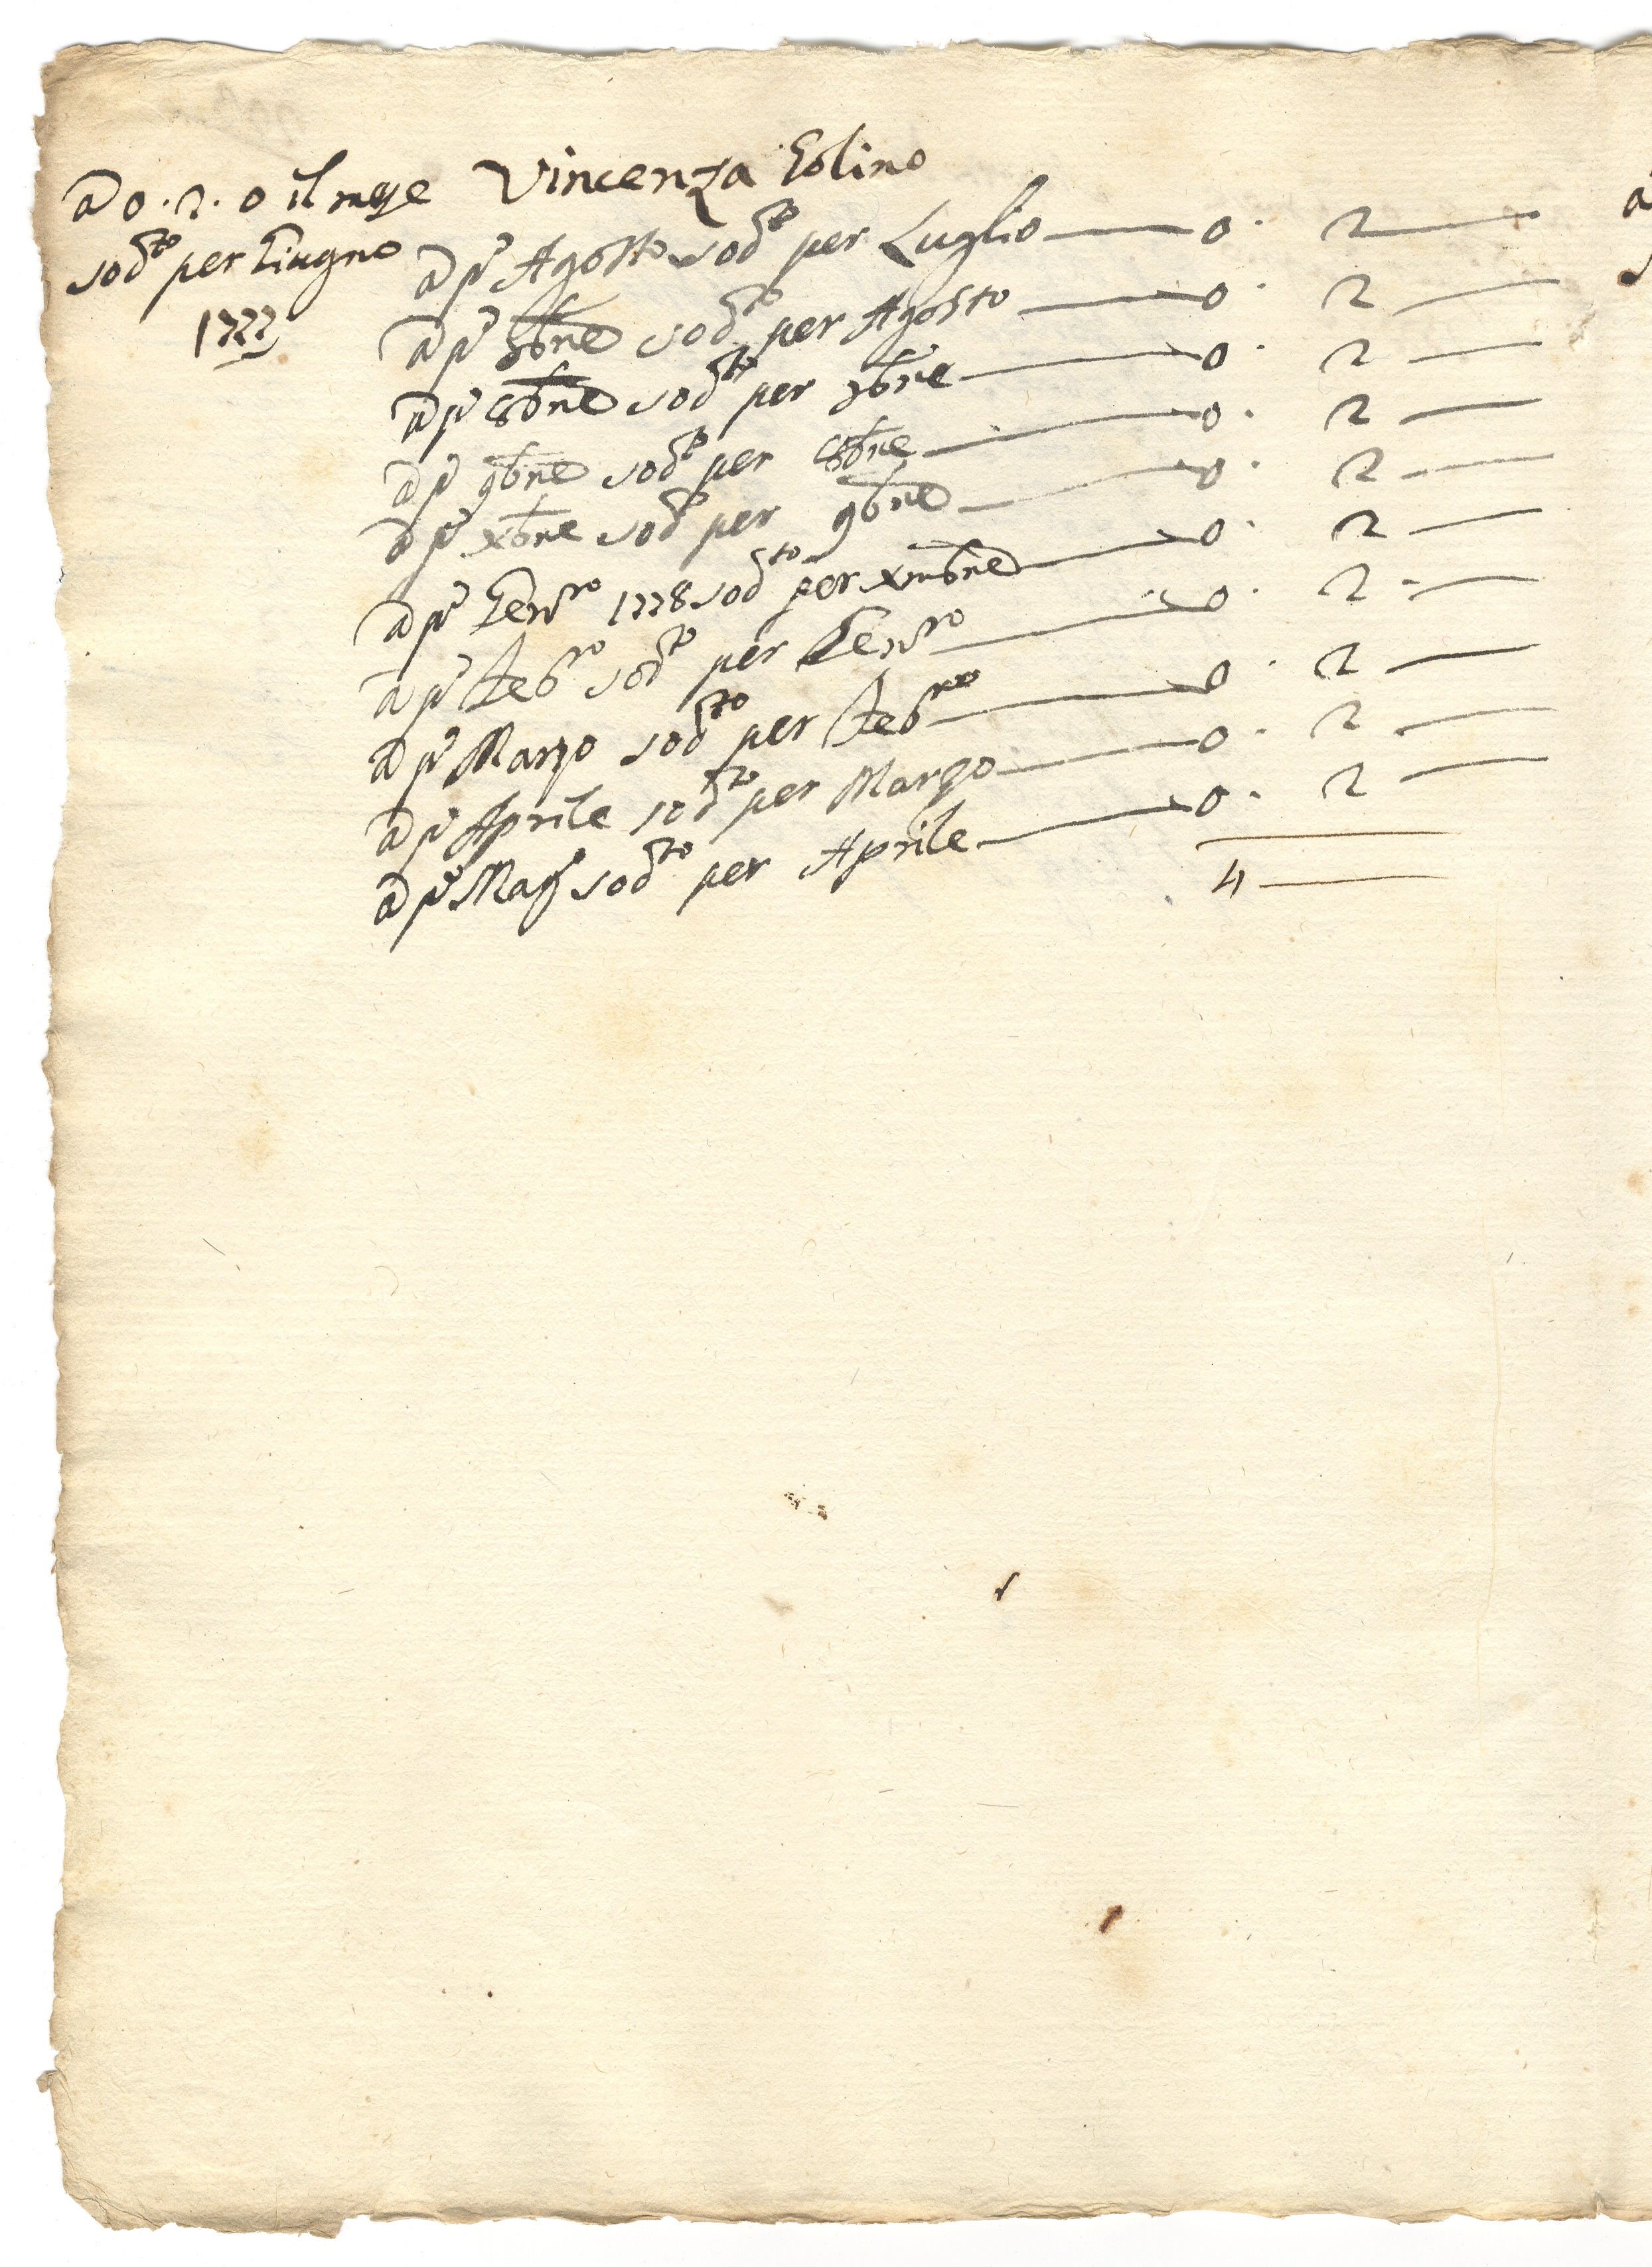 a 0. 2. 0 il mese
sod.to per Giugno
1777
Vincenza
a p.o Agosto sod.to per Luglio — 0. 2 —
a p.o 7bre sod.to per Agosto — 0. 2 —
a p.o 8bre sod.to per 7bre — 0. 2 —
a p.o 9bre sod.to per 8bre — 0. 2 —
a p.o xbre sod.to per 9bre — 0. 2 —
a p.o Gen.ro 1778 sod.to per xmbre — 0. 2 —
a p.o Feb.ro sod.to per Gen.ro — 0. 2 —
a p.o Marzo sod.to per Feb.ro — 0. 2 —
a p.o Aprile sod.to per Marzo — 0. 2 —
a p.o Mag.o sod.to per Aprile — 0. 2 —
4 —